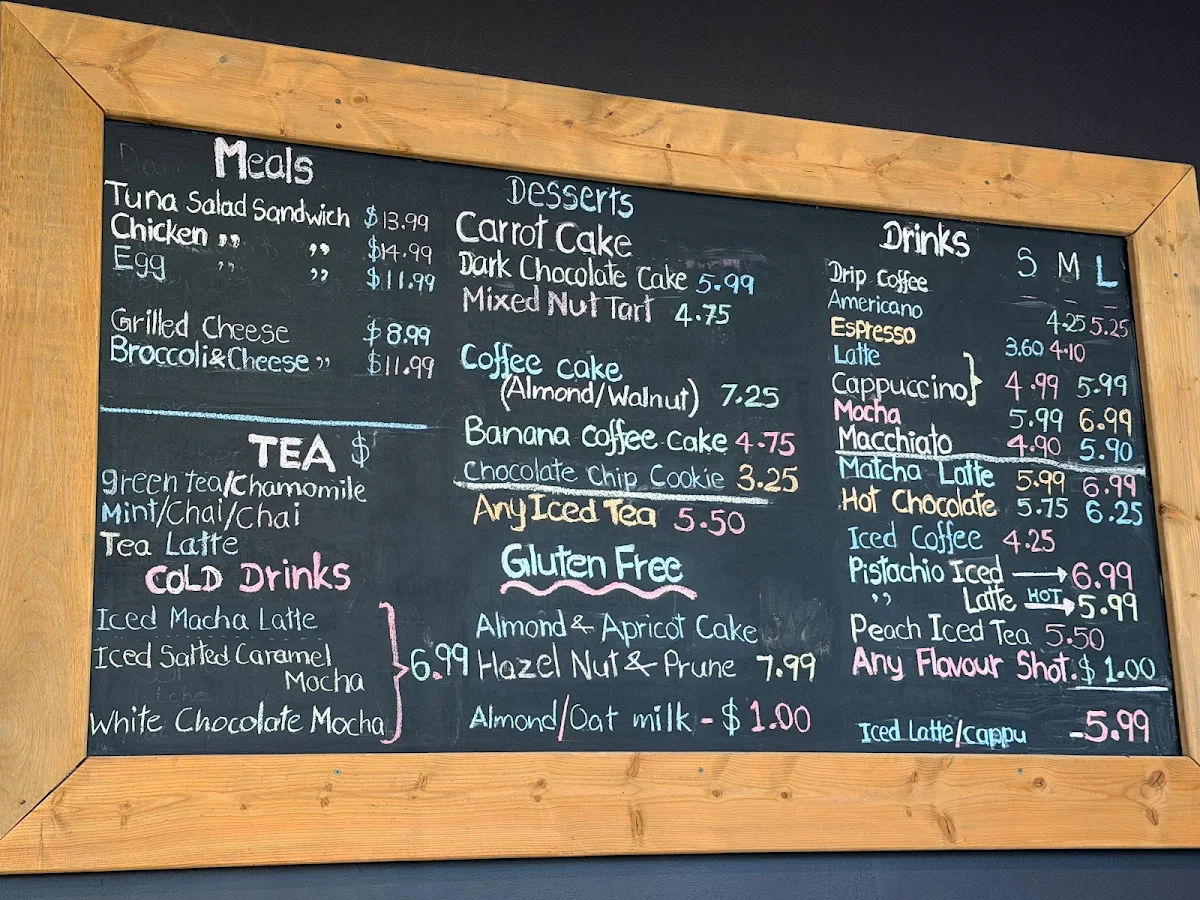 Meals
Tuna Salad Sandwich $13.99
Chicken ,, ,, $14.99
Egg ,, ,, $11.99
Grilled Cheese $8.99
Broccoli & Cheese ,, $11.99
TEA $
green tea/Chamomile
Mint/Chai/Chai
Tea Latte
COLD Drinks
Iced Macha Latte
Iced Salted Caramel
Mocha
White Chocolate Mocha
6.99
Desserts
Carrot Cake
Dark Chocolate Cake 5.99
Mixed Nut Tart 4.75
Coffee cake
(Almond/Walnut) 7.25
Banana coffee cake 4.75
Chocolate Chip Cookie 3.25
Any Iced Tea 5.50
Gluten Free
Almond & Apricot Cake
Hazel Nut & Prune 7.99
Almond/Oat milk - $1.00
Drinks S M L
Drip Coffee
Americano 4.25 5.25
Espresso 3.60 4.10
Latte
Cappuccino 4.99 5.99
Mocha 5.99 6.99
Macchiato 4.90 5.90
Matcha Latte 5.99 6.99
Hot Chocolate 5.75 6.25
Iced Coffee 4.25
Pistachio Iced → 6.99
,, Latte HOT → 5.99
Peach Iced Tea 5.50
Any Flavour Shot. $1.00
Iced Latte/cappu -5.99